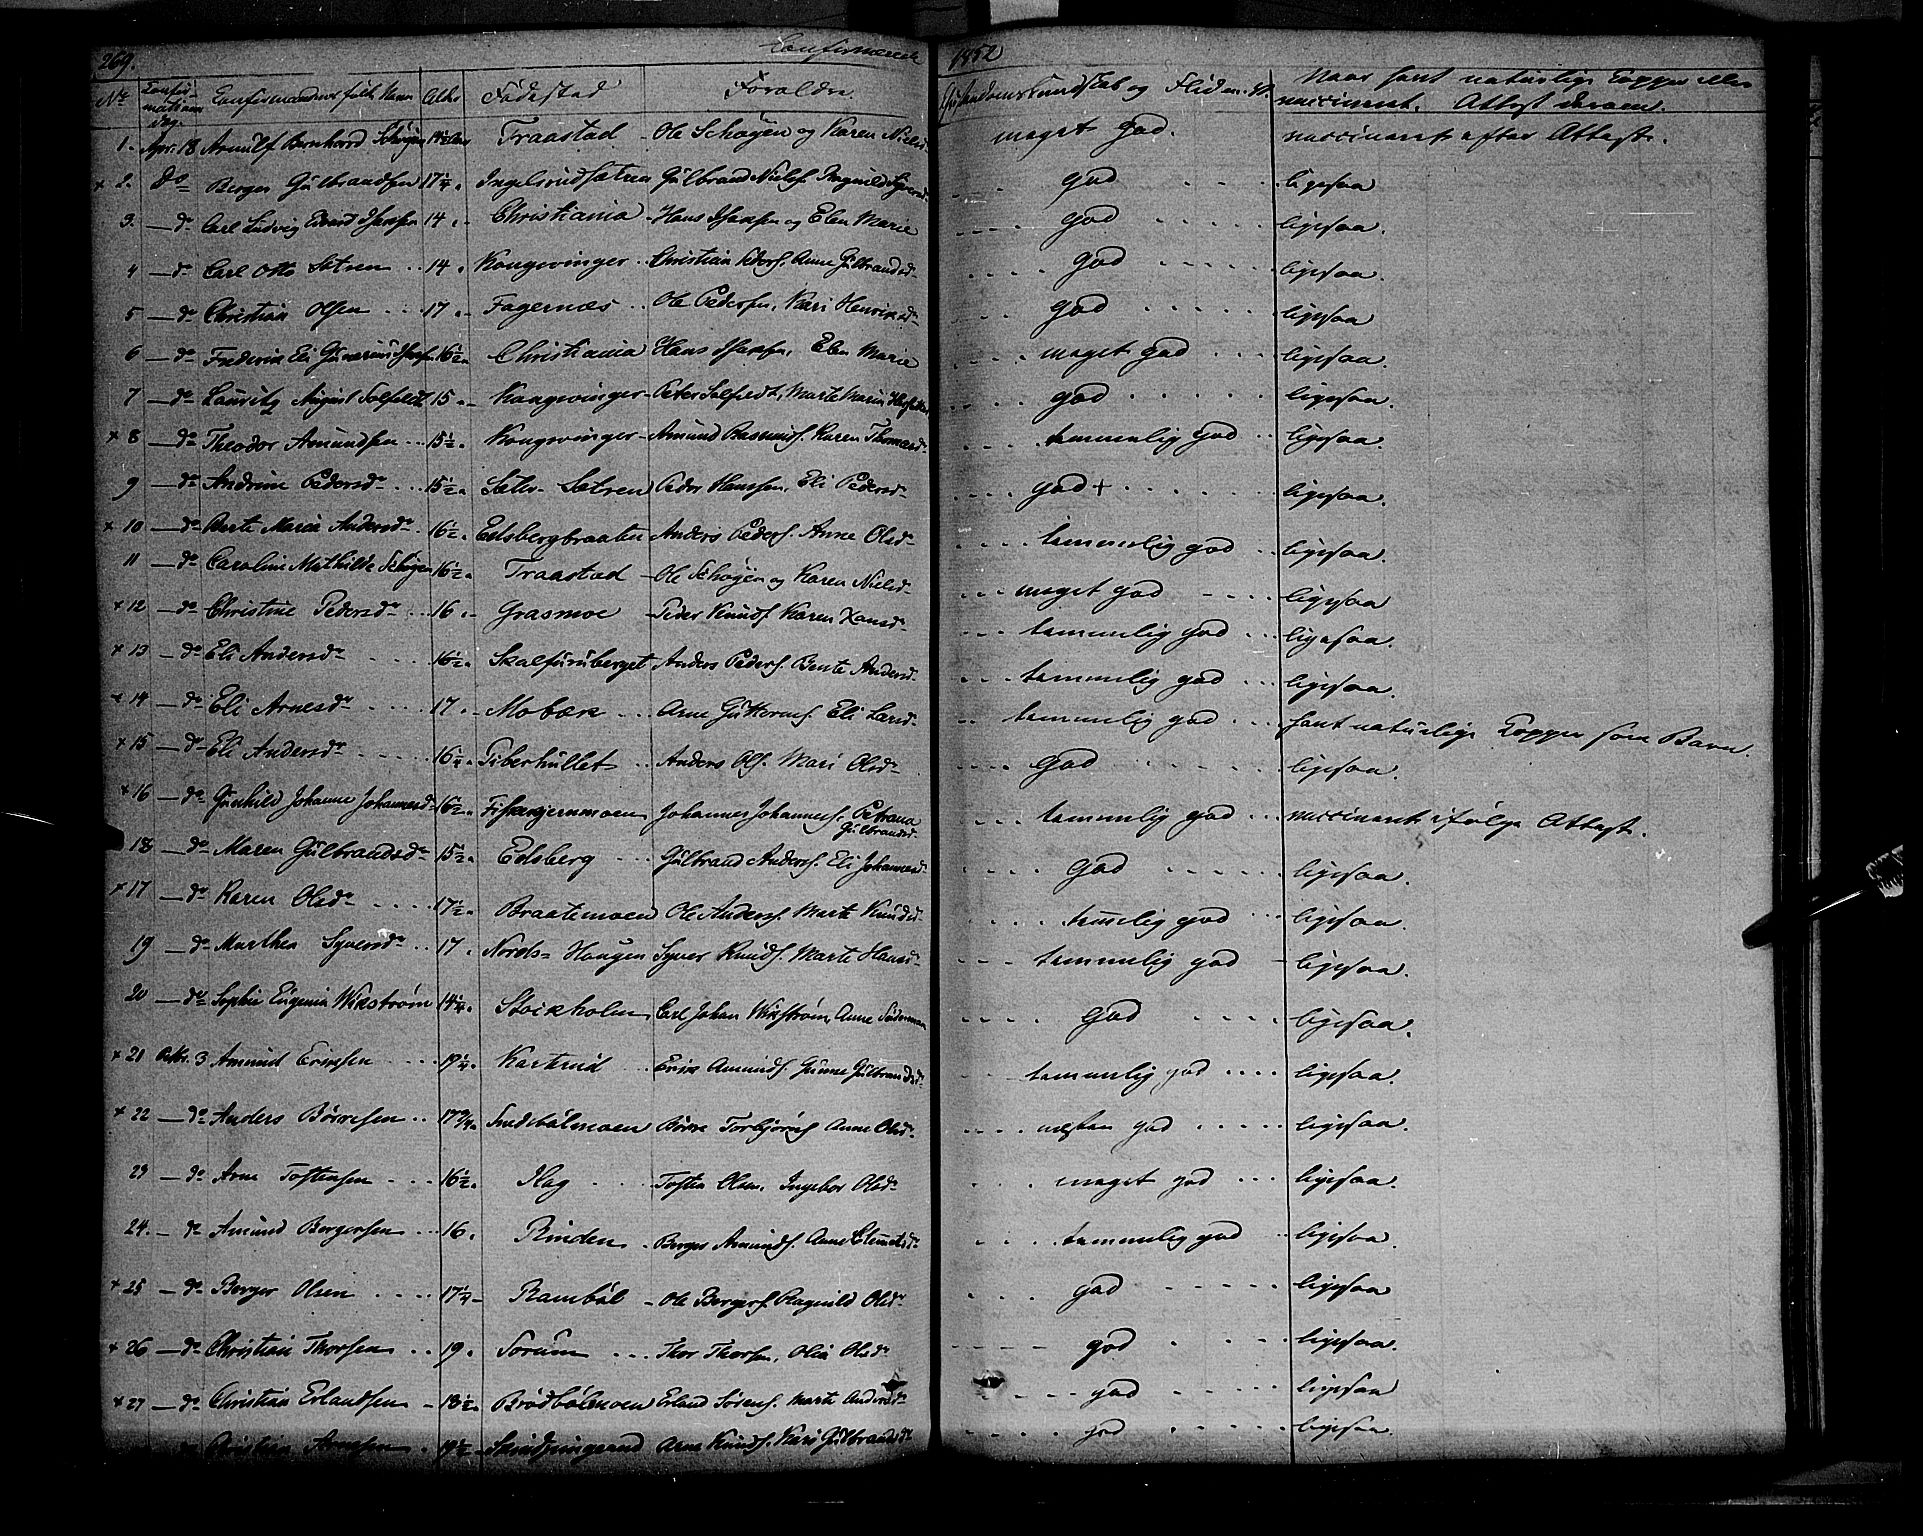 269. Confirmerede 1852
No Confirmations Dag. Confirmandernes fulde Navn Alder Fødested Forældre Christendomskundskab og Flid m. V. Naar havt naturlige Kopper eller
vaccineret. Attest derom.
1. Apr. 18 Arnulf Bernhard Schøyen 14½ Aar Traastad - Ole Schøyen og Karen Nielsd. meget god. vaccineret efter Attest.
+ 2. do Berger Gulbrandsen 17¼. Ingelsrudsætren Gulbrand Nielsf. Ragnild Syversd. god ligesaa
3. — do Carl Ludvig Edvard 14. Christiania - Hans og Elen Marie god ligesaa.
4 — do Carl Otto Sætren 14. Kongsvinger Christian Peders. Anne Gulbrandsd. god ligesaa.
5 — do Christian Olsen 17. Fagernæs Ole Pedersen, Kari Henriksd. god ligesaa
6 — do Frederik Eli 16½. Christiania Hans Elen Marie meget god ligesaa.
7 — do Lauritz August Solfeldt 15. Kongsvinger - Peter Solfeldt, Marte Maria god ligesaa.
+ 8 — do Theodor Amundsen 15½. Kongsvinger - Amund Rasmusf. Karen Thomasd. temmelig god ligesaa.
9 — do Andrine Pedersd. 15½. Sæter-Sætren Peder Hanssen, Eli Pedersd. god + ligesaa.
+ 10 — do Berte Maria Andersd. 16½. Edsbergbraaten Anders Peders. Anne Olsd. temmelig god ligesaa.
11 — do Caroline Mathilde Schøyen 16½. Traastad - Ole Schøyen og Karen Nielsd. meget god ligesaa
+ 12 — do Christine Pedersd. 16. Grasmoe - Peder Knuds. Karen Hansd. temmelig god ligesaa.
+ 13 — do Eli Andersd. 16½. Skalfuruberget Anders Peders. Bente Andersd. temmelig god ligesaa.
+ 14 — do Eli Arnesd. 17. Mobæk Arne Guttorms. Eli Larsd. temmelig god havt naturlige Kopper som Barn
+ 15 — do Eli Andersd. 16¼. Tiberhullet Anders Ols. Mari Olsd. god ligesaa.
+ 16 — do Gunhild Johanne Johannesd. 16½. Fiskegjernmoen Johannes Johanness. Petrana Gulbrandsd. temmelig god vaccineret ifølge Attest.
18 — do Maren Gulbrandsd. 15½. Edsberg Gulbrand Anders. Eli Johannesd. god ligesaa.
+ 17 — do Karen Olsd. 17½. Braatemoen Ole Anders. Marte Knudsd. temelig god ligesaa.
19 — do Marthea Syversd. 17. Nords-Haugen Syver Knuds. Marte Hansd. temmelig god ligesaa.
20 — do Sophie Eugenia Wikstrøm 14¼. Stockholm Carl Johan Wikstrøm, Anne Söderman god ligesaa.
+ 21 Octbr. 3 Amund Eriksen 19¼. Kartrud Erik Amunds. Gunne Gulbrandsd. temmelig god ligesaa.
+ 22 — do Anders Børresen 17¾. Børre Torbjørns. Anne Olsd. næsten god ligesaa.
23 — do Arne Tostensen 16½. Hag Tosten Olsen, Ingebor Olsd. meget god ligesaa.
24. — do Amund Bergersen 16. Rinden Berger Amunds. Anne Clemetsd. temmelig god ligesaa.
+ 25 — do Berger Olsen 17¼ Rambøl - Ole Bergers. Ragnild Olsd. god ligesaa
+ 26 — do Christian Thorsen 19. Sorum Thor Thorsen, Olia Olsd. god ligesaa.
+ 27 — do Christian Erlandsen 18½. Brødbølmoen Erland Sørens. Marte Andersd. god ligesaa
Christian Arnesen 19½ Arne Knuds. Kari Gulbrandsd. god ligesaa.